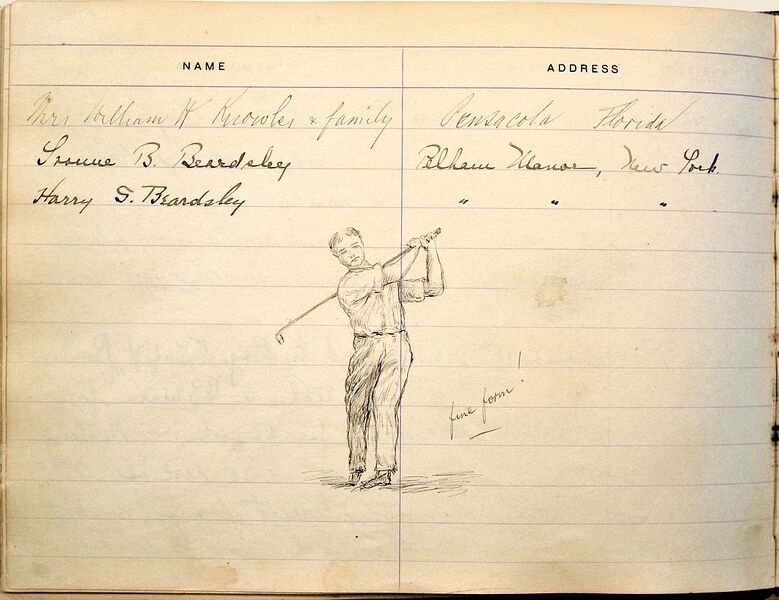 NAME ADDRESS
Mrs William H Knowles & family Pensacola Florida
B. Beardsley Pelham Manor, New York.
Harry S. Beardsley " " "
fine form!